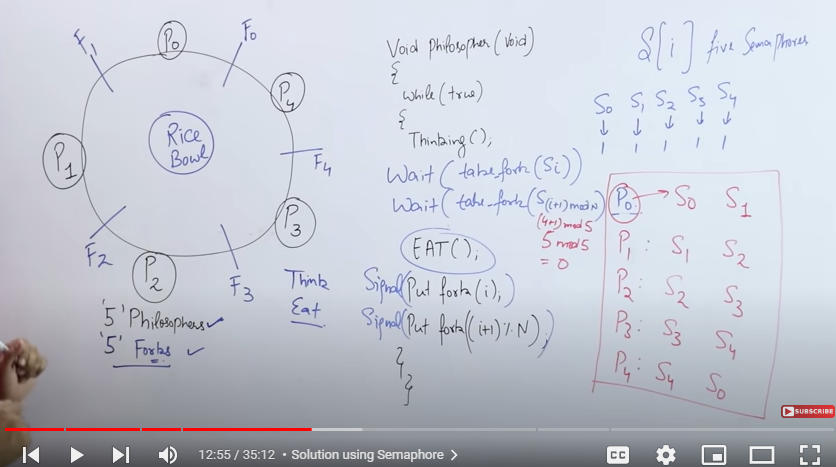 P0
F0
F1
P4
Rice
Bowl
P1
F4
P3
F2
P2
F3
'5' Philosophers
'5' Forks
Think
Eat
Void Philosopher (void)
{
while (true)
{
Thinking();
Wait ( take_fork (Si)
Wait ( take_fork (S(i+1) mod N)
(4+1) mod 5
5 mod 5
= 0
EAT();
Signal (Put fork (i);
Signal (Put fork ((i+1) % N)
}
}
S[i] five Semaphores
S0 S1 S2 S3 S4
1 1 1 1 1
P0 S0 S1
P1 : S1 S2
P2 : S2 S3
P3 : S3 S4
P4 : S4 S0
SUBSCRIBE
12:55 / 35:12 • Solution using Semaphore
CC